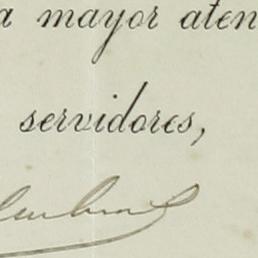 a mayor aten
servidores,